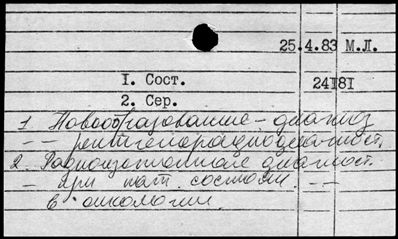 25.4.83 М.Л.
I. Сост. 24I8I
2. Сер.
1 Новообразование - диагноз
— — рентгенорадиодиагност.
2. Радиоизотопная диагност.
— при пат. состоян. — —
в онкологии.